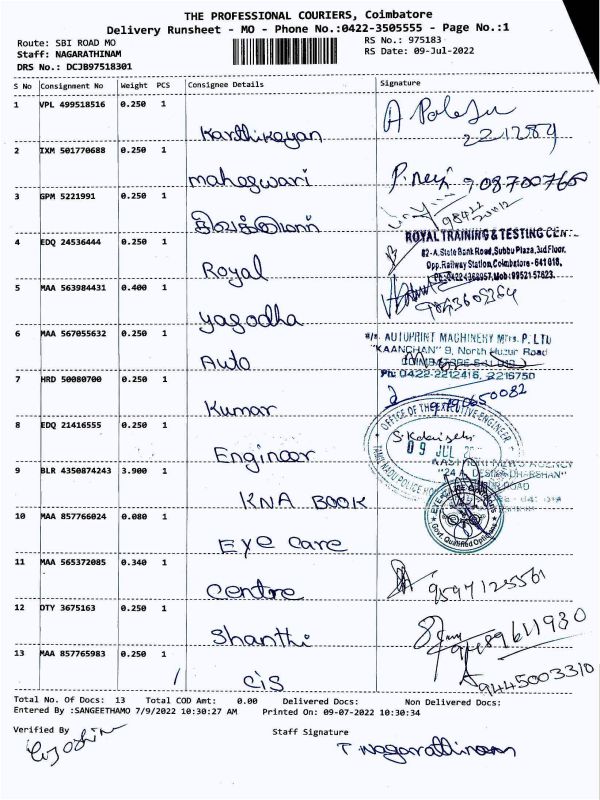 THE PROFESSIONAL COURIERS, Coimbatore
Delivery Runsheet - MO - Phone No.:0422-3505555 - Page No.:1
Route: SBI ROAD MO
RS No.: 975183
Staff: NAGARATHINAM
RS Date: 09-Jul-2022
DRS No.: DCJB97518301
S No Consignment No Weight PCS Consignee Details Signature
1 VPL 499518516 0.250 1
Karthikeyan
221284
2 IXM 501770688 0.250 1
maheswari
3 GPM 5221991 0.250 1
ROYAL TRAINING & TESTING CEN
4 EDQ 24536444 0.250 1
82-A, State Bank Road, Subbu Plaza, 3rd Floor,
Royal
Opp. Railway Station, Coimbatore - 641 018.
5 MAA 563984431 0.400 1
yagodha
6 MAA 567055632 0.250 1
AUTOPRINT MACHINERY Mfrs. P. LTD
"KAANCHAN" 9, North Huzur Road
Auto
Ph: 0422-2212416, 2216750
7 HRD 50080700 0.250 1
Kumar
OFFICE OF THE EXECUTIVE ENGINEER
8 EDQ 21416555 0.250 1
09 JUL
Engineer
9 BLR 4350874243 3.900 1
KNA BOOK
10 MAA 857766024 0.080 1
Eye care
Govt. Qualified Opticians
11 MAA 565372085 0.340 1
centre
9597125561
12 DTY 3675163 0.250 1
Shanthi
13 MAA 857765983 0.250 1
cis
9445003310
Total No. Of Docs: 13 Total COD Amt: 0.00 Delivered Docs: Non Delivered Docs:
Entered By :SANGEETHAMO 7/9/2022 10:30:27 AM Printed On: 09-07-2022 10:30:34
Verified By
Staff Signature
T Nagarathinam